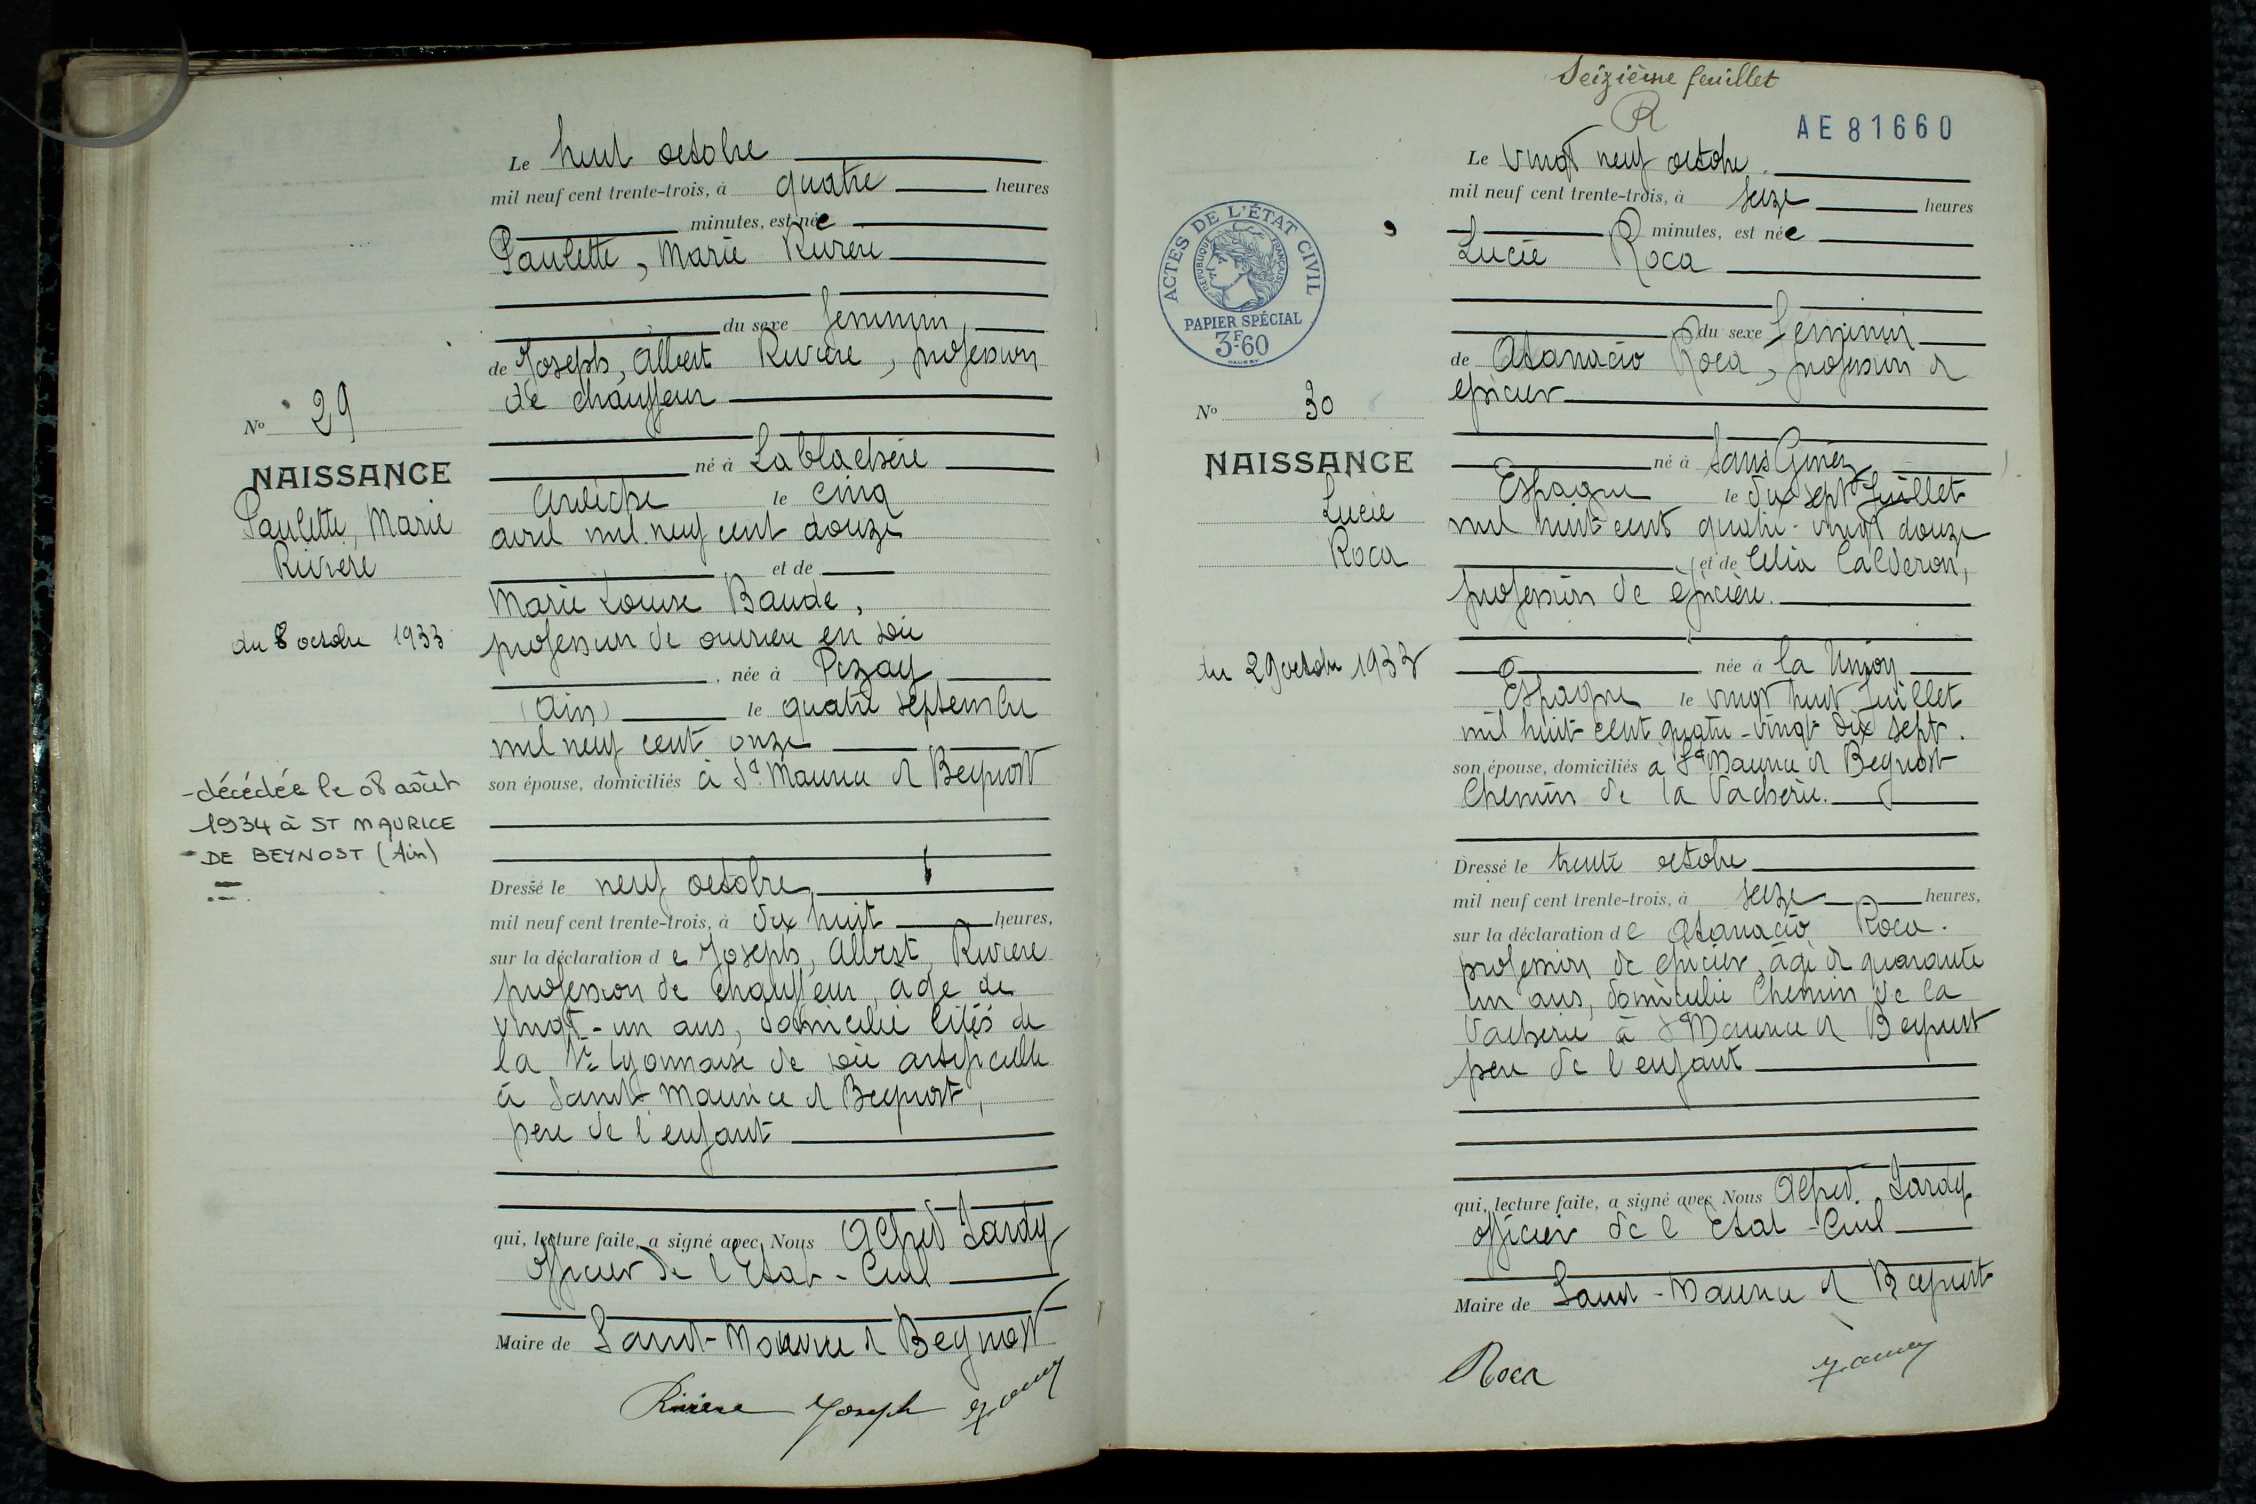 Le huit octobre
mil neuf cent trente-trois, à quatre heures
minutes, est née
Paulette, Marie Riviere
du sexe feminin
de Joseph, Albert Riviere, profession
de chauffeur
né à Lablachère
Ardèche le cinq
avril mil neuf cent douze
et de
Marie Louise Baude,
profession de ouvriere en soie
née à Pizay
(Ain) le quatre septembre
mil neuf cent onze
son épouse, domiciliés à St Maurice de Beynost
Dressé le neuf octobre
mil neuf cent trente-trois, à dix huit heures,
sur la déclaration de Joseph, Albert, Riviere
profession de chauffeur, age de
vingt-un ans, domicilié Cités de
la Sté Lyonnaise de soie artificielle
à Saint Maurice de Beynost,
pere de l'enfant
qui, lecture faite, a signé avec Nous Alfred Tardy
officier de l'Etat-Civil
Maire de Saint-Maurice de Beynost
Riviere Joseph
No 29
NAISSANCE
Paulette, Marie
Riviere
du 8 octobre 1933
-décédée le 08 août
1934 à ST MAURICE
DE BEYNOST (Ain)
Seizième feuillet
R
AE 81660
ACTES DE L'ÉTAT CIVIL
RÉPUBLIQUE FRANÇAISE
PAPIER SPÉCIAL
3F.60
No 30
NAISSANCE
Lucie
Roca
du 29 octobre 1933
Le vingt neuf octobre
mil neuf cent trente-trois, à seize heures
minutes, est née
Lucie Roca
du sexe Féminin
de Atanacio Roca, profession de
epicier
né à Sans Ginéz
Espagne le dix sept Juillet
mil huit cent quatre-vingt douze
et de Célia Calderon,
profession de épicière.
née à la Union
Espagne le vingt huit Juillet
mil huit cent quatre-vingt dix sept.
son épouse, domiciliés à St Maurice de Beynost
Chemin de la Vacherie.
Dressé le trente octobre
mil neuf cent trente-trois, à seize heures,
sur la déclaration de Atanacio Roca.
profession de épicier, âgé de quarante
un ans, domicilié Chemin de la
Vacherie à St Maurice de Beynost
pere de l'enfant
qui, lecture faite, a signé avec Nous Alfred. Tardy
officier de l'Etat-Civil
Maire de Saint-Maurice de Beynost
Roca